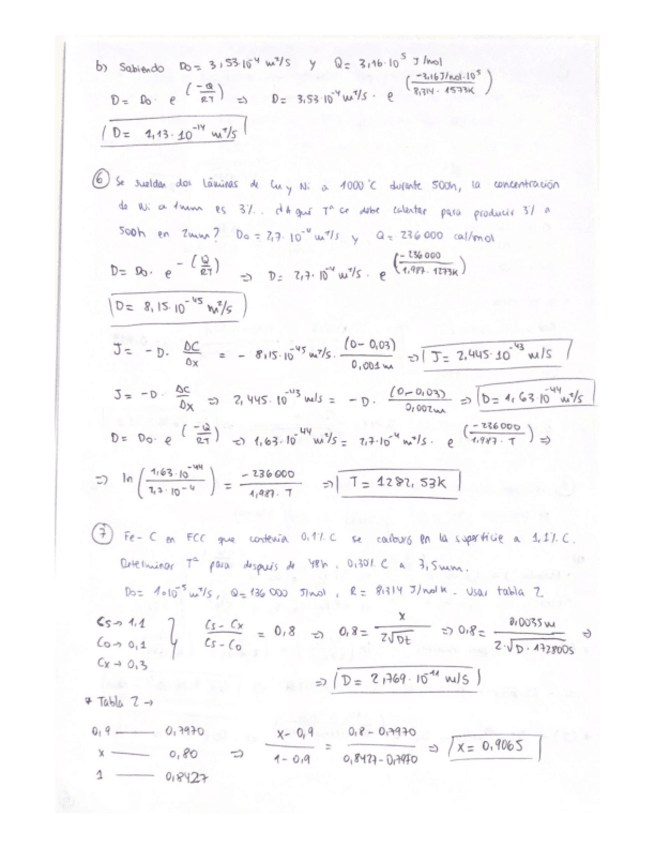 b) Sabiendo D₀ = 3,53·10⁻⁴ m²/s y Q = 3,16·10⁵ J/mol
D = D₀ · e^(-Q/RT) ⇒ D = 3,53·10⁻⁴ m²/s · e^(-3,16 J/mol·10⁵ / 8,314 · 1573K)
D = 1,13·10⁻¹⁴ m²/s
⑥ Se sueldan dos láminas de Cu y Ni a 1000°C durante 500h, la concentración
de Ni a 1mm es 3%. ¿A qué Tª se debe calentar para producir 3% a
500h en 2mm? D₀ = 2,7·10⁻⁴ m²/s y Q = 236000 cal/mol
D = D₀ · e^-(Q/RT) ⇒ D = 2,7·10⁻⁴ m²/s · e^(-236000 / 1,987 · 1273K)
D = 8,15·10⁻⁴⁵ m²/s
J = -D · ΔC/Δx = -8,15·10⁻⁴⁵ m²/s · (0-0,03)/0,001m ⇒ J = 2,445·10⁻⁴³ m/s
J = -D · ΔC/Δx ⇒ 2,445·10⁻⁴³ m/s = -D · (0-0,03)/0,002m ⇒ D = 1,63·10⁻⁴⁴ m²/s
D = D₀ · e^(-Q/RT) ⇒ 1,63·10⁻⁴⁴ m²/s = 2,7·10⁻⁴ m²/s · e^(-236000 / 1,987 · T) ⇒
⇒ ln(1,63·10⁻⁴⁴ / 2,7·10⁻⁴) = -236000 / 1,987 · T ⇒ T = 1282,53K
⑦ Fe-C en FCC que contenía 0,1% C se carburó en la superficie a 1,1% C.
Determinar Tª para después de 48h. 0,30% C a 3,5mm.
D₀ = 1·10⁻⁵ m²/s, Q = 136000 J/mol, R = 8,314 J/mol K. Usar tabla 2.
Cs → 1,1
C₀ → 0,1
Cx → 0,3
Cs - Cx / Cs - C₀ = 0,8 ⇒ 0,8 = x / 2√Dt ⇒ 0,8 = 0,0035m / 2·√D·172800s ⇒
⇒ D = 2,769·10⁻¹¹ m/s
* Tabla 2 →
0,9 —— 0,7970
x —— 0,80
1 —— 0,8427
⇒ x - 0,9 / 1 - 0,9 = 0,8 - 0,7970 / 0,8427 - 0,7970 ⇒ x = 0,9065